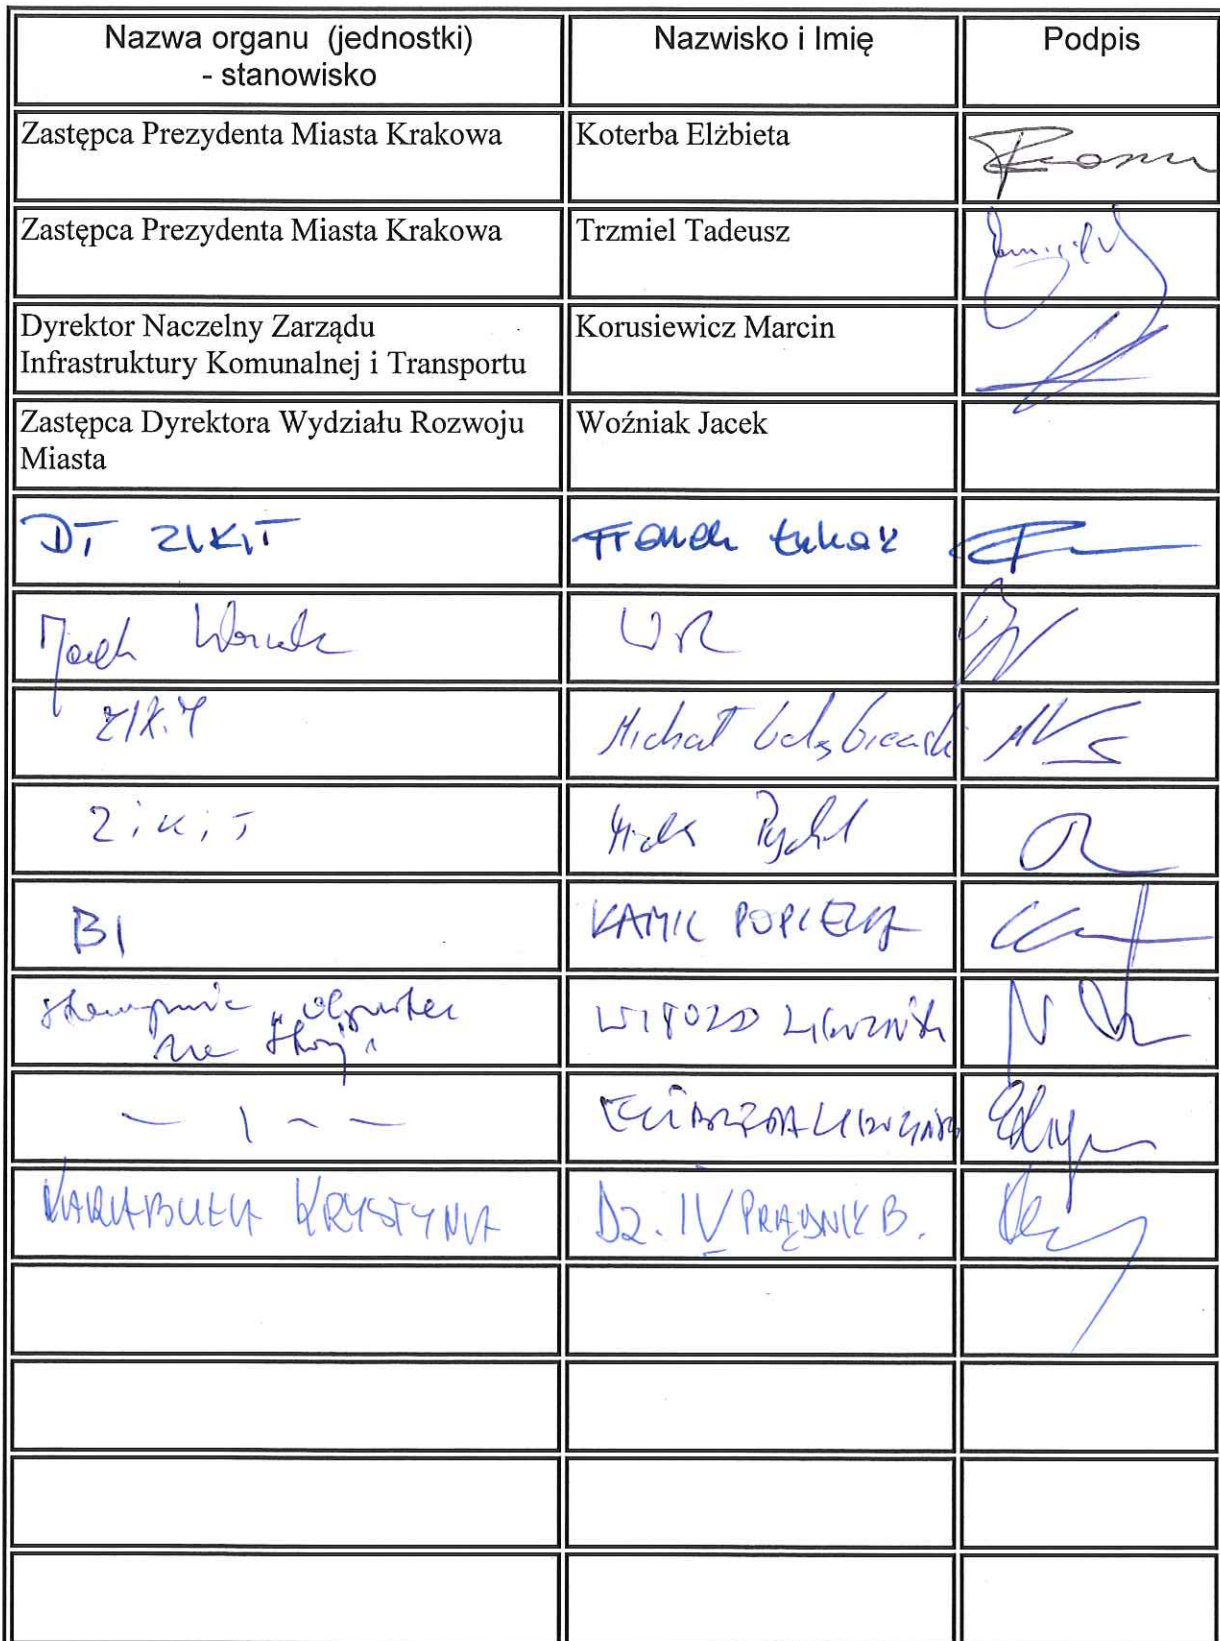 Nazwa organu (jednostki)
- stanowisko
Nazwisko i Imię
Podpis
Zastępca Prezydenta Miasta Krakowa
Koterba Elżbieta
Zastępca Prezydenta Miasta Krakowa
Trzmiel Tadeusz
Dyrektor Naczelny Zarządu
Infrastruktury Komunalnej i Transportu
Korusiewicz Marcin
Zastępca Dyrektora Wydziału Rozwoju
Miasta
Woźniak Jacek
DT ZIKIT
Franek Łukasz
Jacek Woźniak
WR
ZIKiT
Michał
ZiKiT
BI
KAMIL POPIELA
WITOLD
KRYSTYNA
Dz. IV PRĄDNIK B.